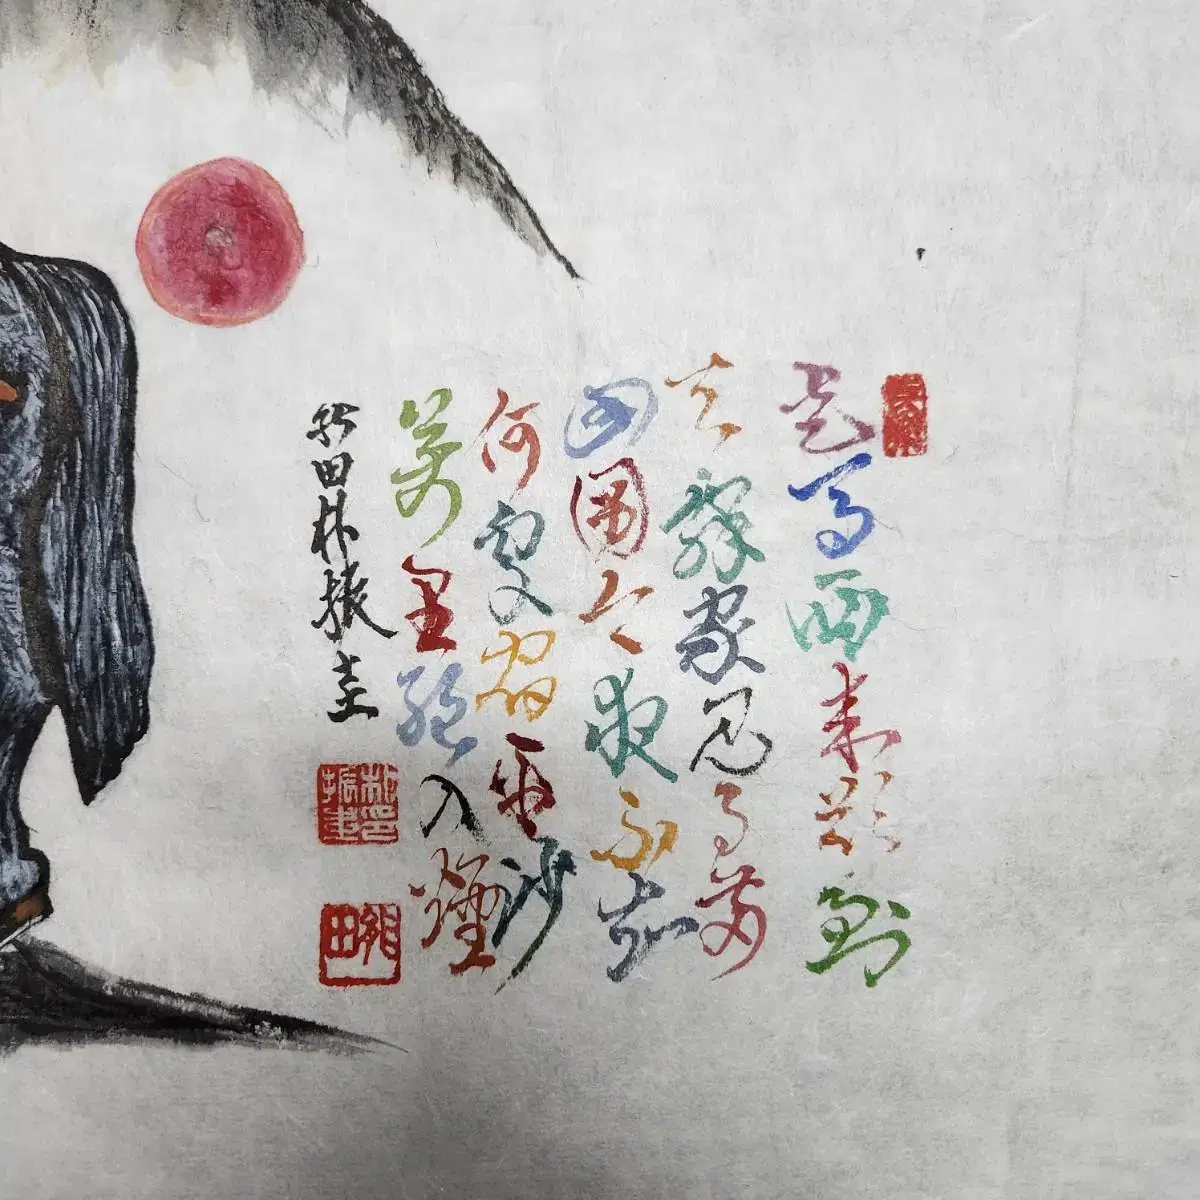 走馬西來欲到
天辭家見月兩
回圓今夜不知
何處宿平沙
萬里絶入煙
田朴振圭